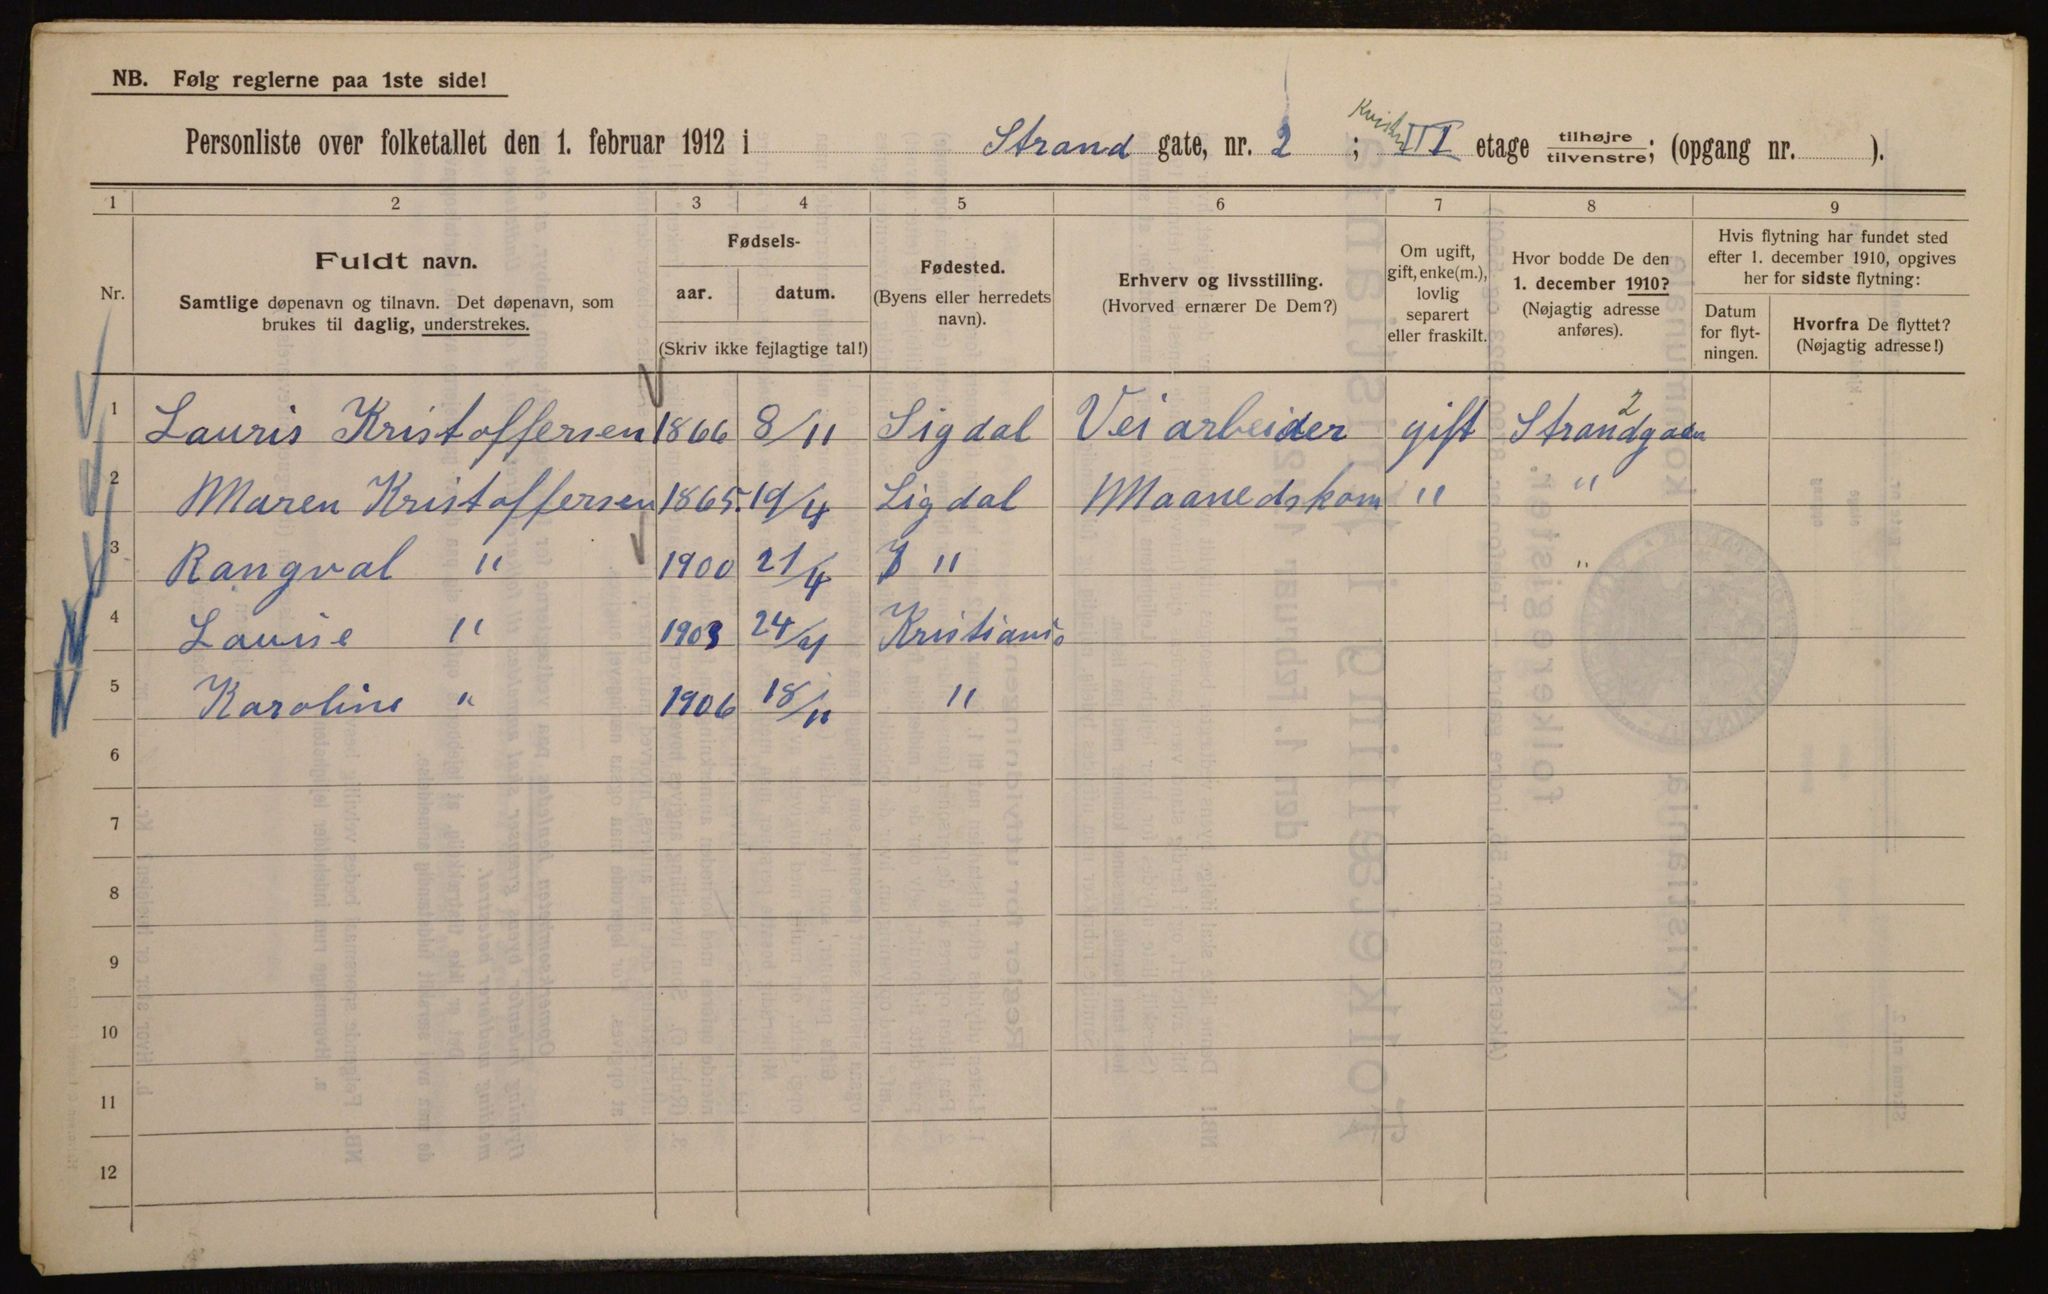 NB. Følg reglerne paa 1ste side!
Kvist
Personliste over folketallet den 1. februar 1912 i Strand gate, nr. 2 ; III etage tilhøjre tilvenstre; (opgang nr. ).
1 2 3 4 5 6 7 8 9
Nr.
Fuldt navn.
Samtlige døpenavn og tilnavn. Det døpenavn, som
brukes til daglig, understrekes.
Fødsels-
aar. datum.
(Skriv ikke fejlagtige tal!)
Fødested.
(Byens eller herredets
navn).
Erhverv og livsstilling.
(Hvorved ernærer De Dem?)
Om ugift,
gift, enke(m.),
lovlig
separert
eller fraskilt.
Hvor bodde De den
1. december 1910?
(Nøjagtig adresse
anføres).
Hvis flytning har fundet sted
efter 1. december 1910, opgives
her for sidste flytning:
Datum
for flyt-
ningen.
Hvorfra De flyttet?
(Nøjagtig adresse!)
1 Lauris Kristoffersen 1866 8/11 Sigdal Veiarbeider gift Strandgaen 2
2 Maren Kristoffersen 1865 19/4 Sigdal Maanedskom " "
3 Rangval " 1900 21/4 " "
4 Laurie " 1903 24/4 Kristiania
5 Karoline " 1906 18/11 "
6
7
8
9
10
11
12